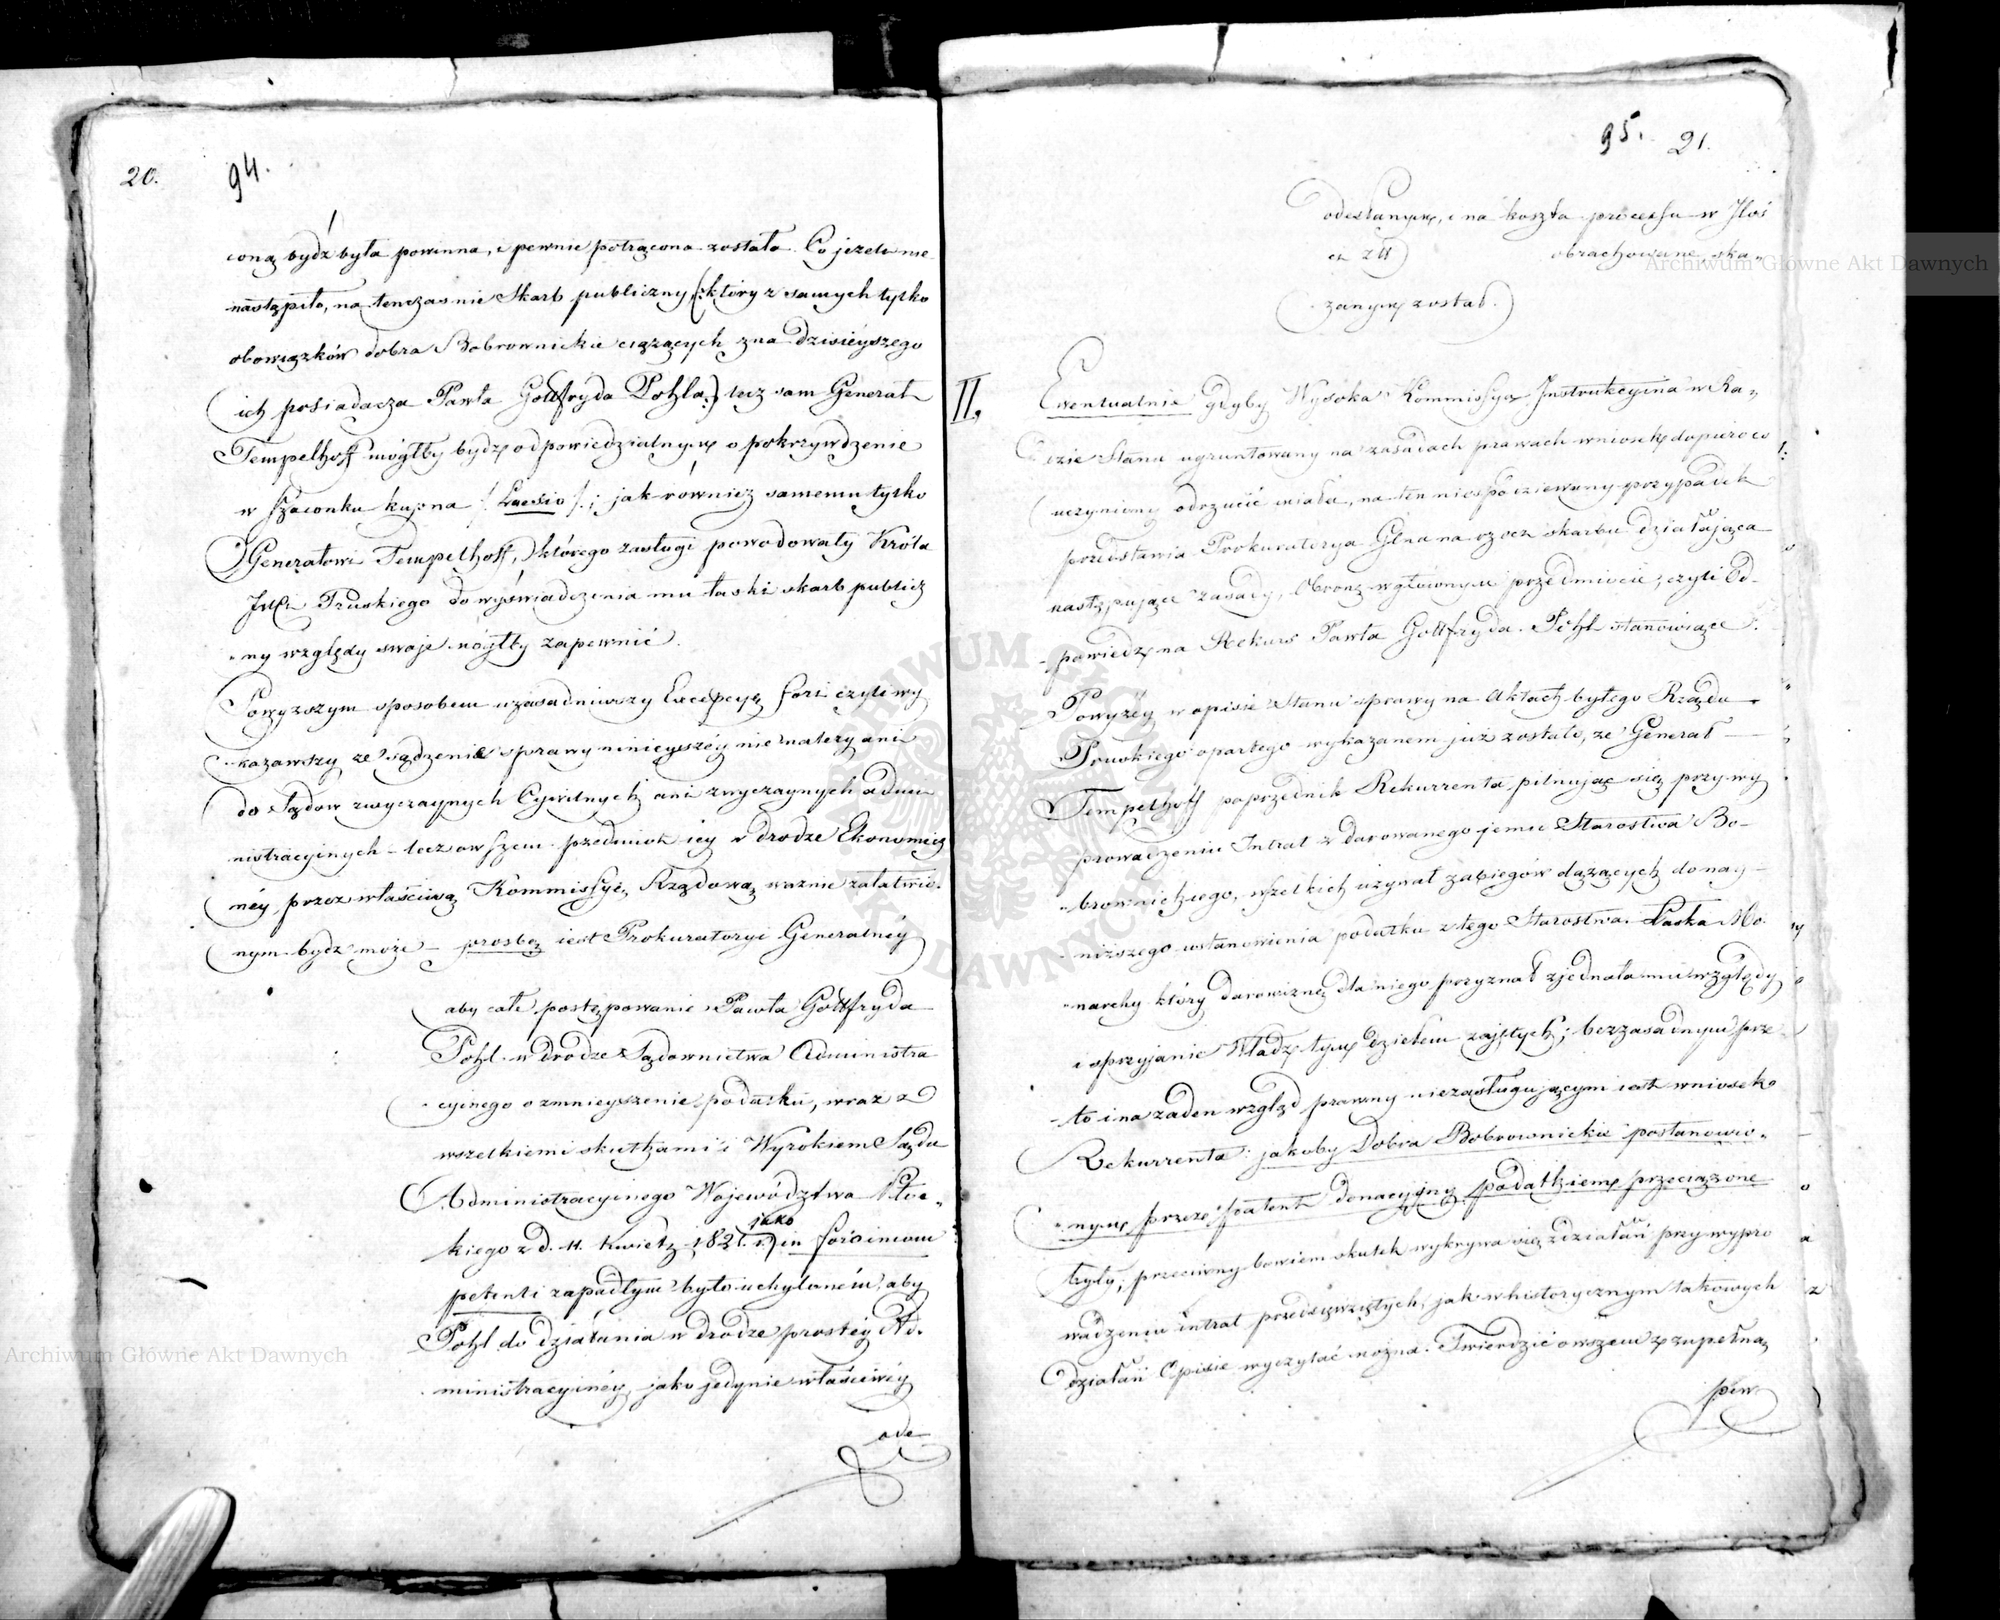 20. 94.
coną bydź była powinna, i pewnie potrącona została. Co jeżeli nie
nastąpiło, na tenczas nie Skarb publiczny (:który z samych tylko
obowiązków dobra Bobrownickie ciążących zna dzisieyszego
ich posiadacza Pawła Gottfryda Pohla:) lecz sam Generał
Tempelhoff mógłby bydź odpowiedzialnym o pokrzywdzenie
w szacunku kupna /: Laesio :/; jak rownież samemu tylko
Generałowi Tempelhoff, którego zasługi powodowały Króla
JMci Pruskiego do wyświadczenia mu łaski skarb publicz
ny względy swoje mógłby zapewnić.
Powyższym sposobem uzasadniwszy Excepcyą fori czyli wy
kazawszy że sądzenie sprawy ninieyszéy nie należy ani
do Sądów zwyczaynych Cywilnych ani zwyczaynych admi
nistracyinych – lecz owszem przedmiot iey w drodze Ekonomicz
néy przez właściwą Kommissyę Rządową ważnie załatwio-
nym bydź może – prośbą iest Prokuratoryi Generalnéy
aby całe postępowanie Pawła Gottfryda
Pohl w drodze Sądownictwa Administra
cyinego o zmnieyszenie podatku, wraz z
wszelkiemi skutkami i Wyrokiem Sądu
Administracyinego Województwa Płoc-
kiego z d. 11. Kwietn. 1821. r. jako in foro incom
petenti zapadłym było uchyloném, aby
Pohl do działania w drodze prostéy Ad-
ministracyinéy jako jedynie właściwéy
ode
95. 21.
odesłanym, i na koszta processu w Ilości
zł obrachowane ska-
zanym został.
II.
Ewentualnie gdyby Wysoka Kommissya Instrukcyina w Ra-
dzie Stanu ugruntowany na zasadach prawach wniosek dopiero co
uczyniony odrzucić miała, na ten niespodziewany przypadek
przedstawia Prokuratorya Glna na rzecz skarbu działająca
następujące zasady, Obronę w głównym przedmiocie, czyli Od-
powiedź na Rekurs Pawła Gottfryda Pohl stanowiące:
Powyżéy w opisie Stanu sprawy na Aktach byłego Rządu
Pruskiego opartego wykazanem już zostało, że Generał
Tempelhoff poprzednik Rekurrenta pilnując się przy wy
prowadzeniu Intrat z darowanego jemu Starostwa Bo-
brownickiego, wszelkich używał zabiegów dążących do nay-
niższego ustanowienia podatku z tego Starostwa. Łaska Mo-
narchy który darowiznę dla niego przyznał zjednała mu względy
i sprzyjanie Władz tym dziełem zajętych; bezzasadnym prze-
to i na żaden wzgląd prawny niezasługującym iest wniosek
Rekurrenta: jakoby Dobra Bobrownickie postanowio-
nym przez patent donacyjny podatkiem przeciążone
były, przeciwny bowiem skutek wykrywa się z działań przy wypro
wadzeniu intrat przedsięwziętych, jak w historycznym takowych
działań Opisie wyczytać można. Twierdzić owszem z zupełną
pew